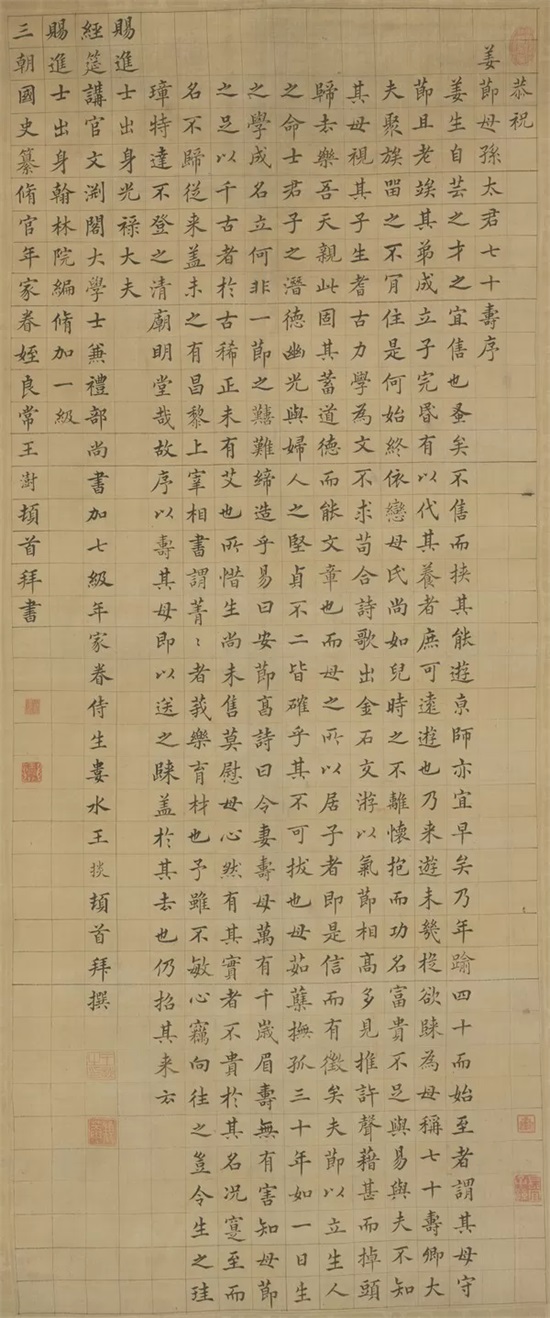 恭祝
姜節母孫太君七十壽序
姜生自芸之才之宜售也蚤矣不售而挾其能遊京師亦宜早矣乃年踰四十而始至者謂其母守
節且老竢其弟成立子完昏有以代其養者庶可遠遊也乃来遊未幾旋欲歸為母稱七十壽卿大
夫聚族畱之不肎住是何始終依戀母氏尚如兒時之不離懷抱而功名富貴不足與易與夫不知
其母視其子生耆古力學為文不求苟合詩歌出金石交游以氣節相高多見推許聲藉甚而掉頭
歸去樂吾天親此固其蓄道德而能文章也而母之所以居子者即是信而有徵矣夫節以立生人
之命士君子之潛德幽光與婦人之堅貞不二皆確乎其不可拔也母茹蘖撫孤三十年如一日生
之學成名立何非一節之囏難締造乎易曰安節髙詩曰令妻壽母萬有千歲眉壽無有害知母節
之足以千古者於古稀正未有艾也所惜生尚未售莫慰母心然有其實者不貴於其名况寔至而
名不歸從来盖未之有昌黎上宰相書謂菁〻者莪樂育材也予雖不敏心竊向往之豈令生之珪
璋特達不登之清廟明堂哉故序以壽其母即以送之歸盖於其去也仍招其来云
賜進士出身光祿大夫
經筵講官文淵閣大學士兼禮部尚書加七級年家眷侍生婁水王掞頓首拜撰
賜進士出身翰林院編脩加一級
三朝國史纂脩官年家眷姪良常王澍頓首拜書